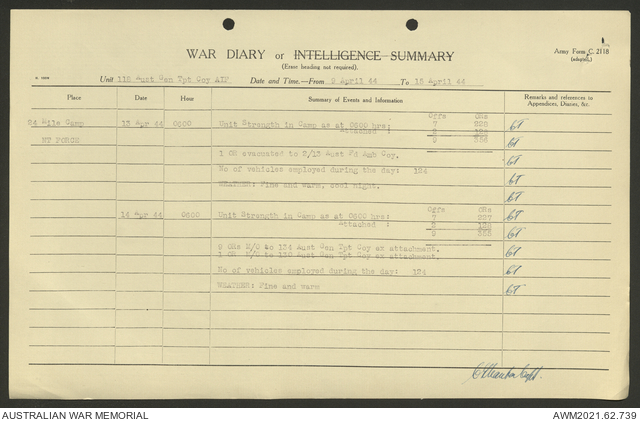 WAR DIARY or INTELLIGENCE SUMMARY
(Erase heading not required).
Army Form C. 2118
(adapted.)
Unit 118 Aust Gen Tpt Coy AIF Date and Time.—From 9 April 44 To 15 April 44
Place Date Hour Summary of Events and Information Remarks and references to Appendices, Diaries, &c.
Offrs ORs
24 Mile Camp 13 Apr 44 0600 Unit Strength in Camp as at 0600 hrs: 7
Attached :
NT FORCE 9
1 OR evacuated to 2/13 Aust Fd Amb Coy.
No of vehicles employed during the day: 124
WEATHER: Fine and warm, cool night.
Offrs ORs
14 Apr 44 0600 Unit Strength in Camp as at 0600 hrs: 7 227
Attached :
9
2 ORs to 134 Aust Gen Tpt Coy ex attachment.
1 OR to 130 Aust Gen Tpt Coy ex attachment.
No of vehicles employed during the day: 124
WEATHER: Fine and warm
AUSTRALIAN WAR MEMORIAL AWM2021.62.739